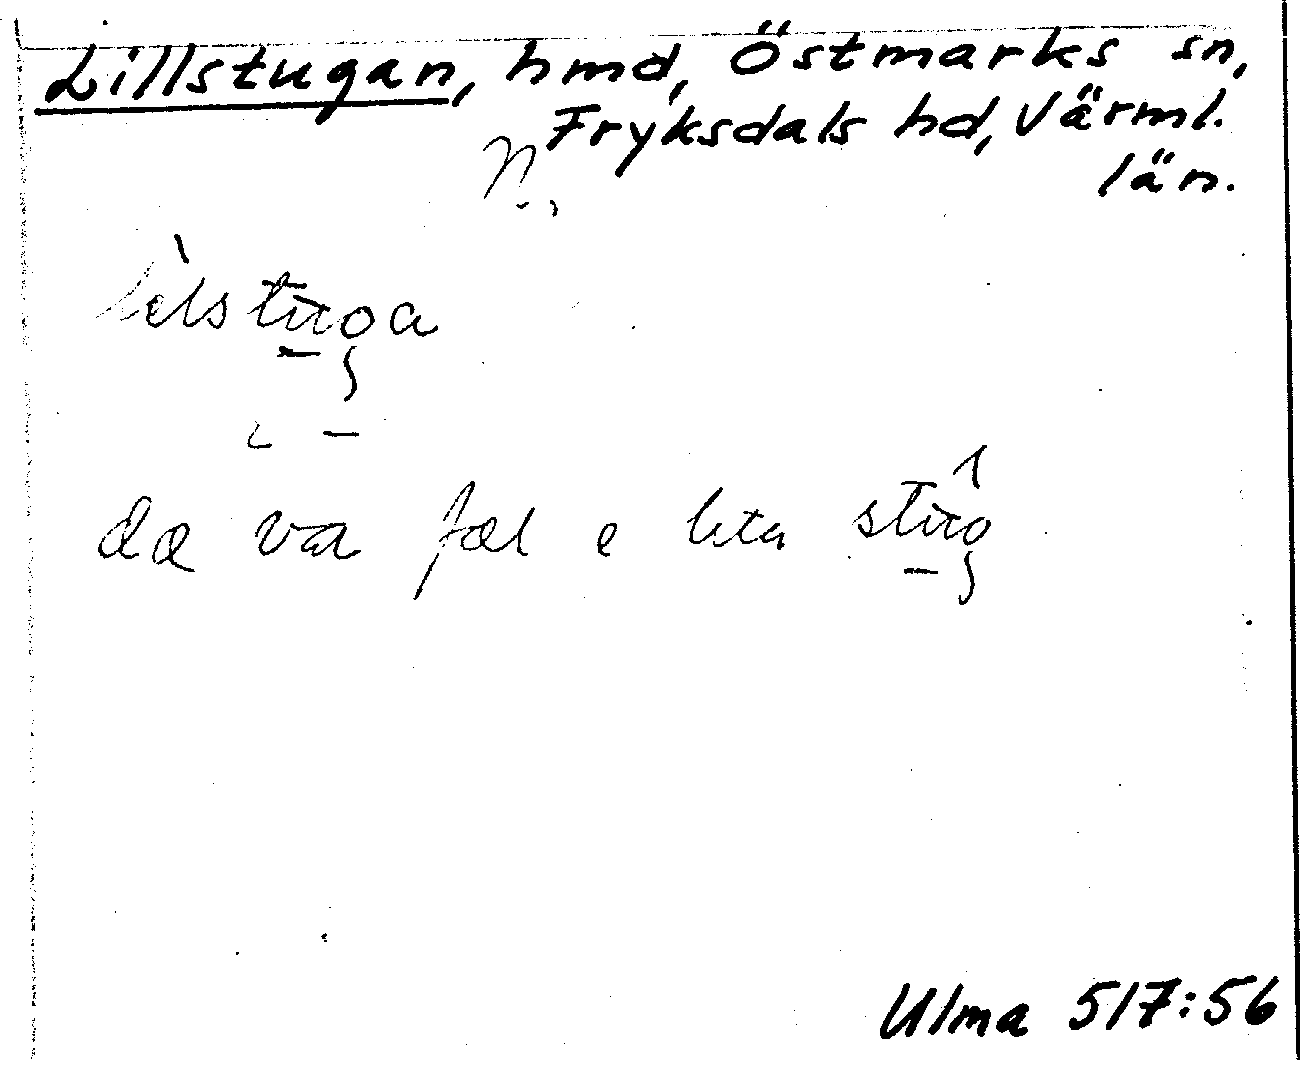 Lillstugan, hmd, Östmarks sn,
Fryksdals hd, Värml.
N. län.
lèlstuga
dæ va fæl e lita stug
Ulma 517:56